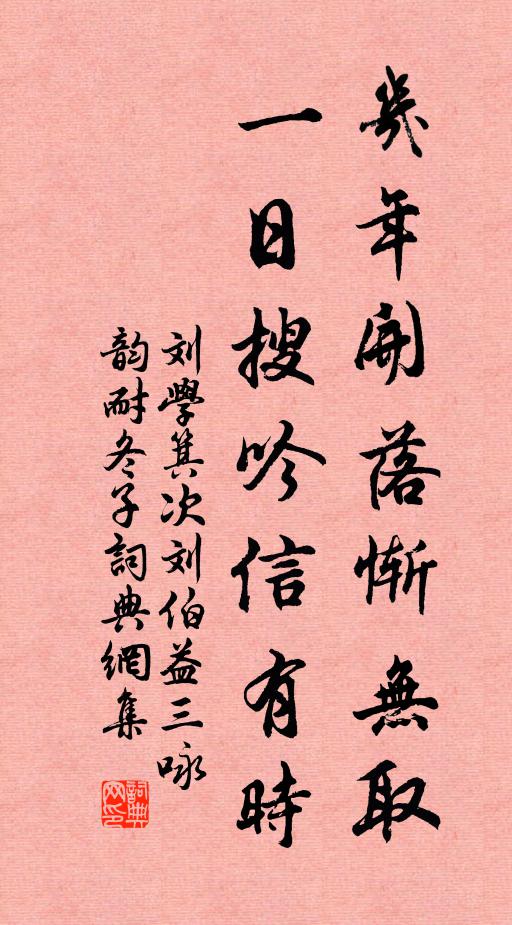 幾年開落慚無取
一日搜吟信有時
刘學箕次刘伯益三咏
韵耐冬子詞典網集
詞典
网印